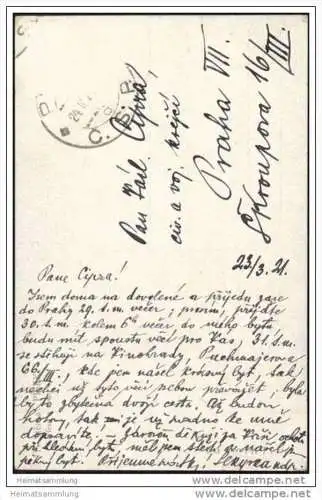 Pan
Cipra,
civ. a voj. krejčí
Praha VII.
Škroupova 16/III
Č.S.P.
23/3. 21.
Pane Cipra!
Jsem doma na dovolené a přijedu zase
do Prahy 29. t.m. večer; prosím, přijďte
30. t.m. kolem 6te večer do mého bytu
budu mít spoustu věcí pro Vás, 31. t.m.
se stěhuji na Vinohrady, Puchmajerova
66/III, kde jsem našel krásný byt, tak
nechci už tyto věci sebou převážet, byla
by to zbytečná dvojí cesta. Až budou
hotovy, tak mi je už snadno ke mně
dopravíte, – Zároveň děkuji za Vaši ochotu
při hledání bytu, měl jsem štěstí, že našel j.
pěkný byt.
www.heimatsammlung.de
Heimatsammlung.de